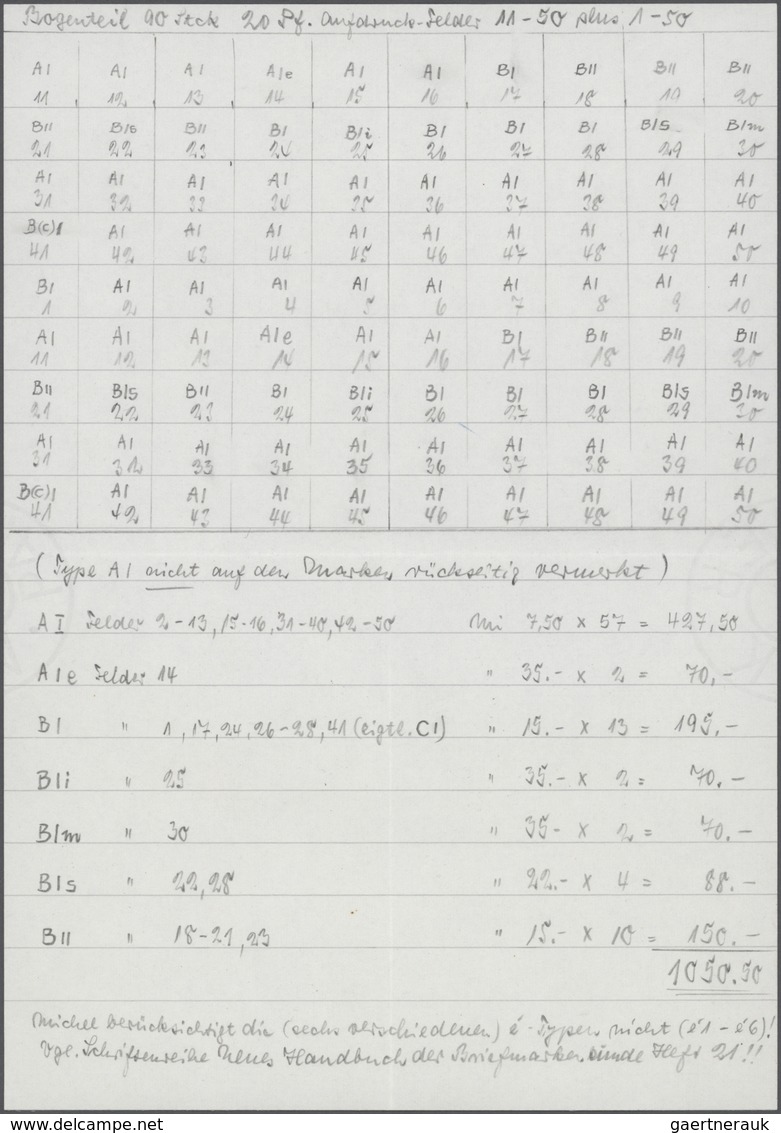 Bogenteil 90 Stck 20 Pf. Aufdruck-Felder 11-50 plus 1-50
AI AI AI AIe AI AI BI BII BII BII
11 12 13 14 15 16 17 18 19 20
BII BIs BII BI BIi BI BI BI BIS BIm
21 22 23 24 25 26 27 28 29 30
AI AI AI AI AI AI AI AI AI AI
31 32 33 34 35 36 37 38 39 40
B(c)I AI AI AI AI AI AI AI AI AI
41 42 43 44 45 46 47 48 49 50
BI AI AI AI AI AI AI AI AI AI
1 2 3 4 5 6 7 8 9 10
AI AI AI AIe AI AI BI BII BII BII
11 12 13 14 15 16 17 18 19 20
BII BIs BII BI BIi BI BI BI BIs BIm
21 22 23 24 25 26 27 28 29 30
AI AI AI AI AI AI AI AI AI AI
31 32 33 34 35 36 37 38 39 40
B(c)I AI AI AI AI AI AI AI AI AI
41 42 43 44 45 46 47 48 49 50
(Type AI nicht auf den Marken rückseitig vermerkt)
AI Felder 2-13, 15-16, 31-40, 42-50 Mi 7,50 x 57 = 427,50
AIe Felder 14 " 35.- x 2 = 70,-
BI " 1, 17, 24, 26-28, 41 (eigtl. CI) " 15.- x 13 = 195,-
BIi " 25 " 35.- x 2 = 70.-
BIm " 30 " 35- x 2 = 70.-
BIs " 22, 28 " 22.- x 4 = 88.-
BII " 18-21, 23 " 15.- x 10 = 150.-
1050.50
Michel berücksichtigt die (sechs verschiedenen) é-Typen nicht (é1-é6)!
Vgl. Schriftenreihe Neues Handbuch der Briefmarkenkunde Heft 21!!
www.delcampe.net
gaertnerauk